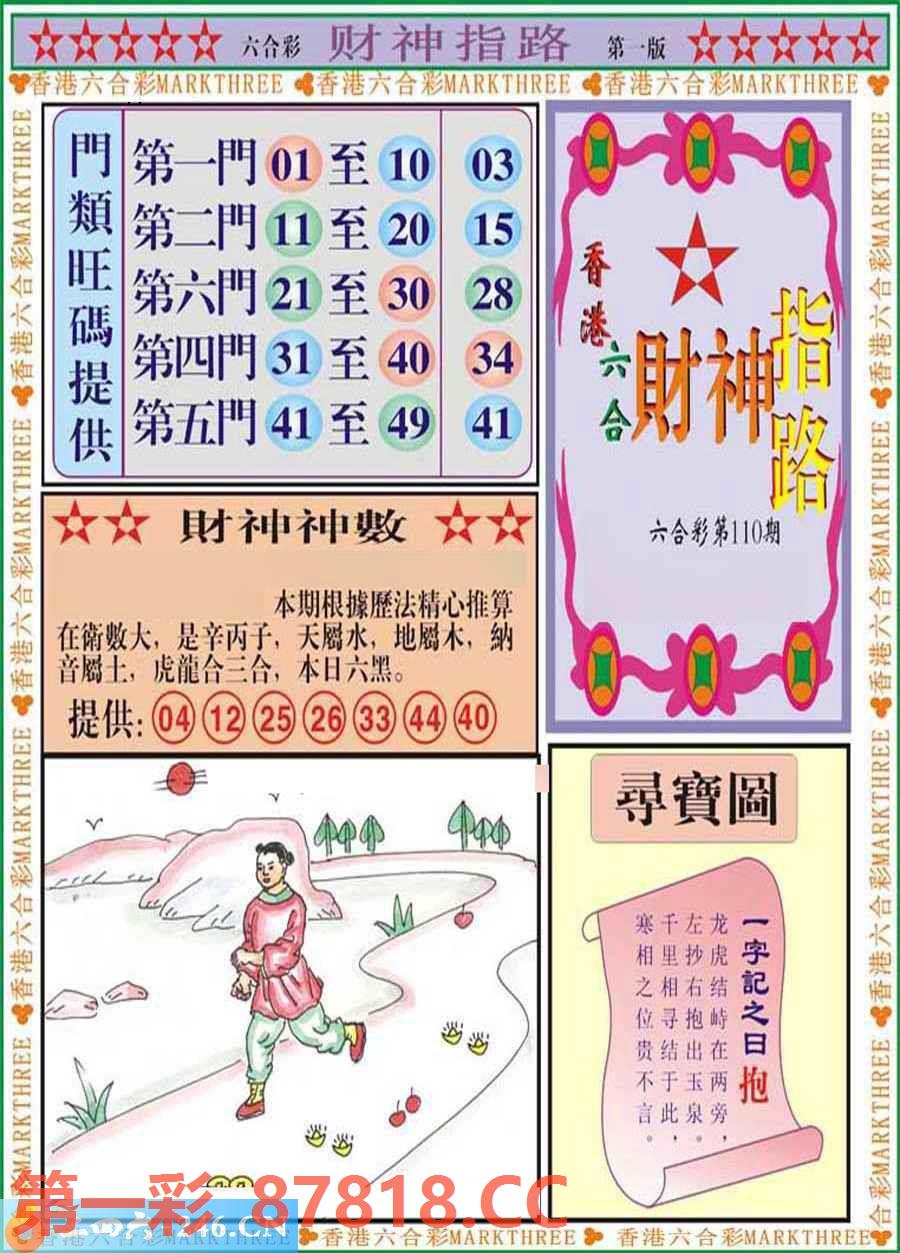 六合彩 财神指路 第一版
香港六合彩MARKTHREE 香港六合彩MARKTHREE 香港六合彩MARKTHREE
門類旺碼提供
第一門 01 至 10 03
第二門 11 至 20 15
第六門 21 至 30 28
第四門 31 至 40 34
第五門 41 至 49 41
香港六合
財神指路
六合彩第110期
財神神數
本期根據歷法精心推算
在衛數大，是辛丙子，天屬水，地屬木，納
音屬土，虎龍合三合，本日六黑。
提供: 04 12 25 26 33 44 40
尋寶圖
一字記之日抱
龙虎结峙在两旁，
左抄右抱出玉泉。
千里相寻结于此，
寒相之位贵不言。
第一彩 87818.CC
246.CN
香港六合彩MARKTHREE 香港六合彩MARKTHREE 香港六合彩MARKTHREE